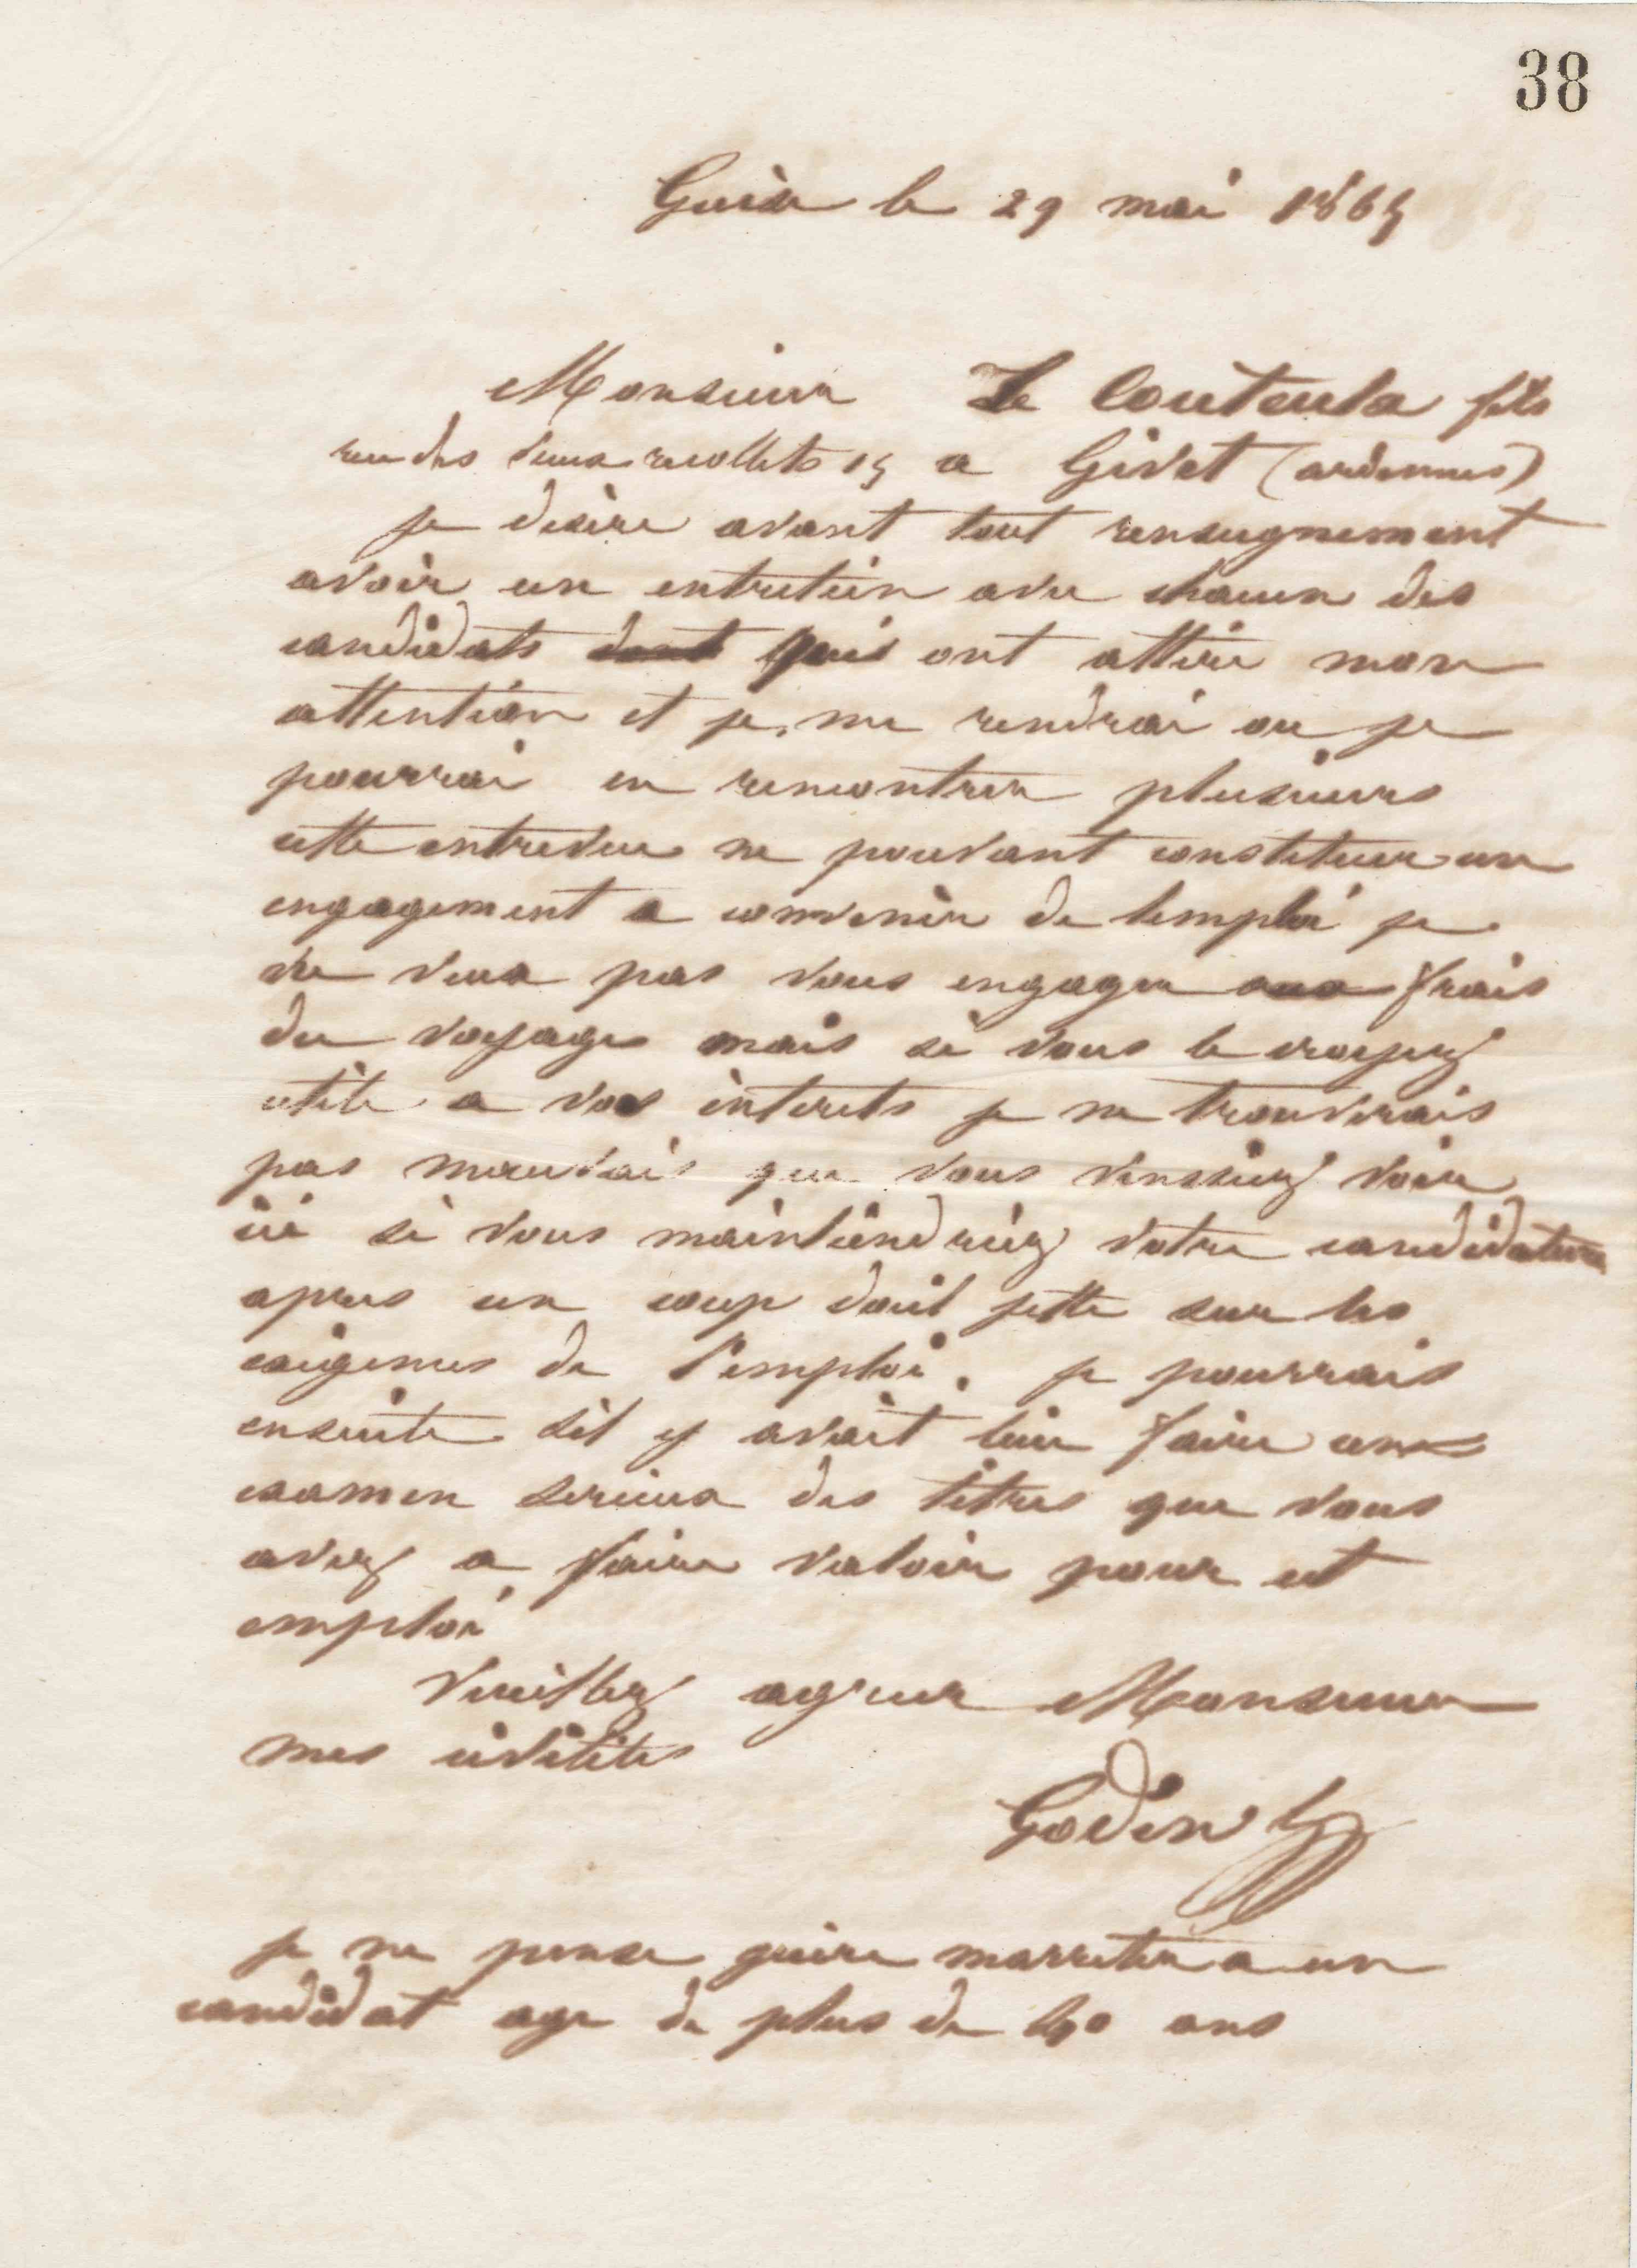 38
Guise le 29 mai 1865
Monsieur Le Couteulx fils
rue des vieux recollets 15 a Givet (ardennes)
je desire avant tout renseignement
avoir un entretien avec chacun des
candidats dont qui ont attiré mon
attention et je me rendrai ou je
pourrai en rencontrer plusieurs
cette entrevue ne pouvant constituer un
engagement a convenir de lemploi je
ne veux pas vous engager aux frais
du voyage mais si vous le croyez
utile a vos interets je ne trouverais
pas mauvais que vous vinssiez voir
ici si vous maintiendriez votre candidature
apres un coup doeil jetté sur les
exigences de l'emploi. je pourrais
ensuite sil y avait lieu faire un
examen serieux des titres que vous
avez a faire valoir pour cet
emploi
Veuillez agreer Monsieur
mes civilités
Godin
je ne pense guère marreter a un
candidat agé de plus de 40 ans